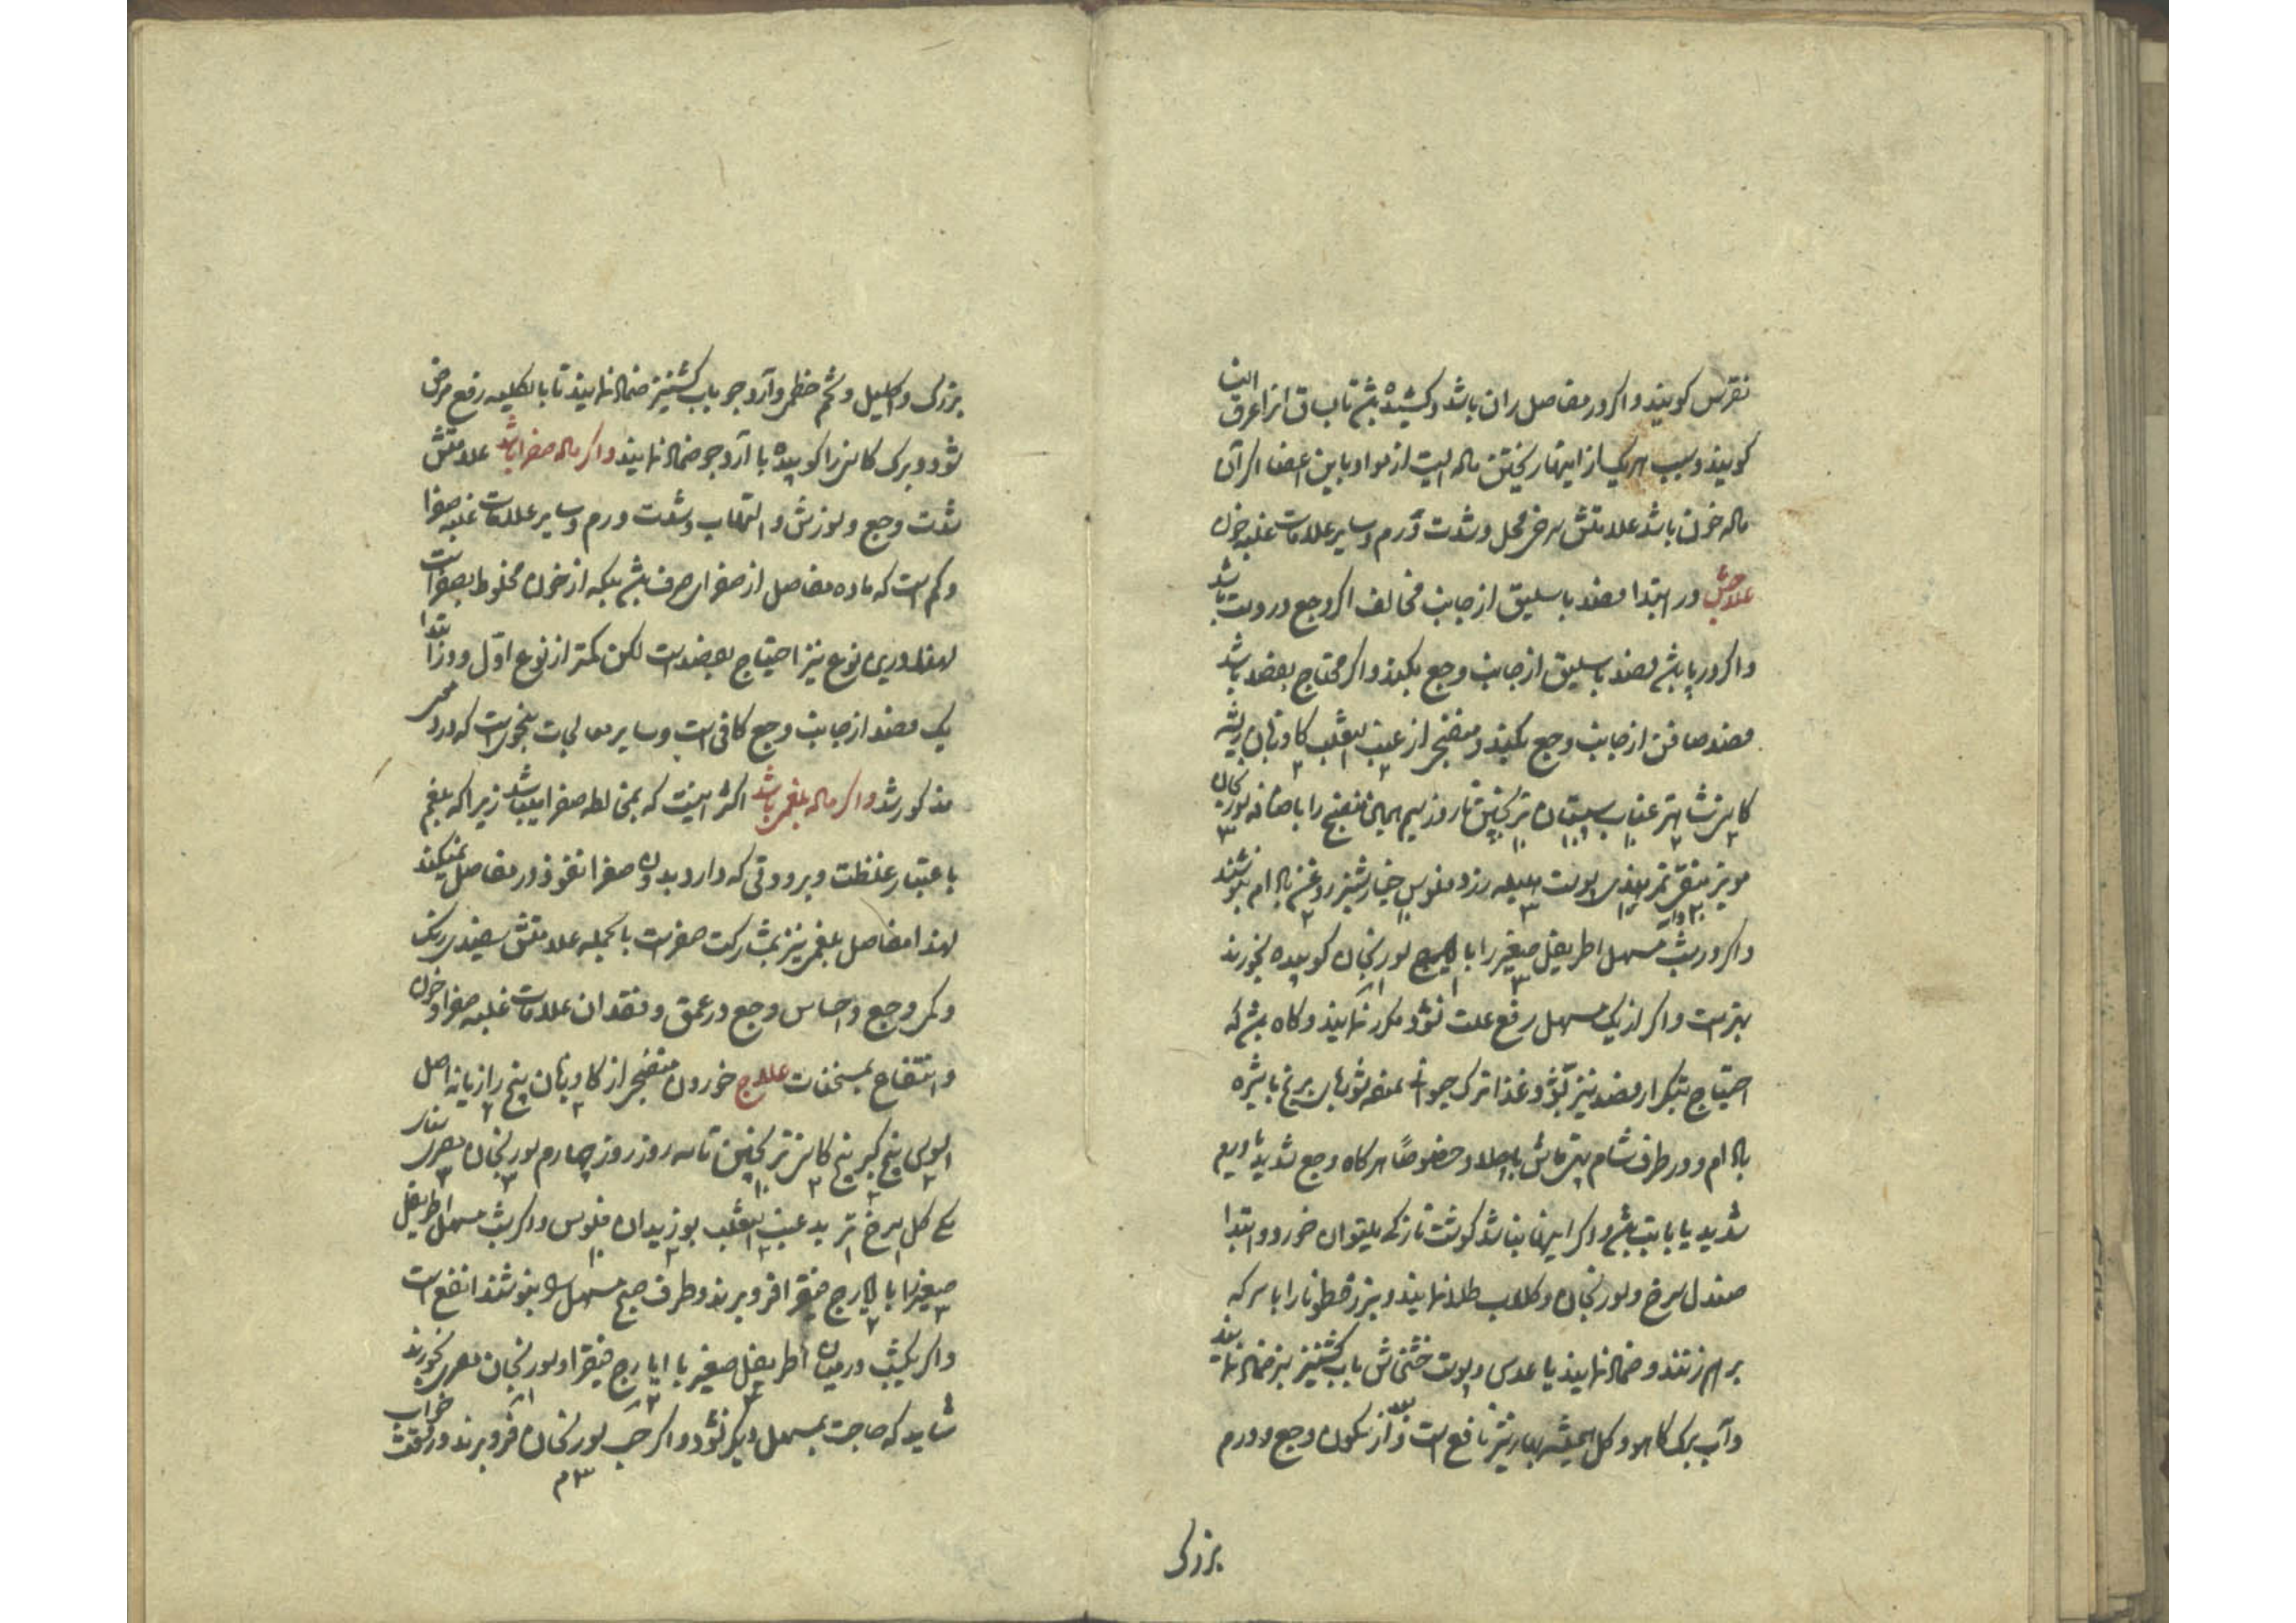 نقرس کویند و اکر در مفاصل ران باشد و کشیده شود تا بساق انرا عرق النسا
کویند و سبب هریک از اینها ریختن ماده ایست از مواد باین اعضا اکر آن
ماده خون باشد علامتش سرخی محل و شدت ورم و سایر علامات غلبه خون
علاجش در ابتدا فصد باسلیق از جانب مخالف اکر وجع در دست باشد
و اکر در پا باشد فصد باسلیق از جانب وجع بکنند و اکر محتاج بفصد باشد
فصد صافن از جانب وجع بکنند و منضجی از عنب الثعلب کاوزبان ریشه
کاسنی شاهتره عناب سپستان ترنجبین تا روز سیم همین منضج را باضافه سورنجان
مویز منقی تمر هندی پوست هلیله زرد فلوس خیارشنبر روغن بادام بنوشند
و اکر در شب مسهل اطریفل صغیر را با ایارج سورنجان کوبیده بخورند
بهتر است و اکر از یک مسهل رفع علت نشود مکرر نمایند و کاه باشد که
احتیاج بتکرار فصد نیز بشود و غذا ترک حیوانی نموده شوربای برنج با شیره
بادام و در طرف شام بهر ماش با اسفناج خصوصا هرکاه وجع شدید یا ورم
شدید یا با تب باشد و اکر اینها نباشد کوشت نازکی میتوان خورد و در ابتدا
صندل سرخ و سورنجان و کلاب طلا نمایند و بزر قطونا را با سرکه
برهم زنند و ضماد نمایند یا عدس و پوست خشخاش باب کشنیز نیز ضماد نمایند
و آب برک کاهو و کل همیشه بهار نیز نافع است و بعد از سکون وجع و ورم
بزرک
بزرک و اکلیل و تخم خطمی و آرد جو باب کشنیز ضماد نمایند تا بالکلیه رفع مرض
شود و برک کاسنی را کوبیده با آرد جو ضماد نمایند و اکر ماده صفرا باشد علامتش
شدت وجع و سوزش و التهاب و شدت ورم و سایر علامات غلبه صفرا
و کم است که ماده مفاصل از صفرای صرف باشد بلکه از خون مخلوط بصفراست
لهذا در این نوع نیز احتیاج بفصد است لکن کمتر از نوع اول و در ابتدا
یک فصد از جانب وجع کافی است و سایر معالجات بنحوی است که در دموی
مذکور شد و اکر ماده بلغمی باشد اکثر اینست که بمخالطه صفرا میباشد زیرا که بلغم
باعتبار غلظت و برودتی که دارد بدون صفرا نفوذ در مفاصل نمیکند
لهذا مفاصل بلغمی نیز بمشارکت صفراست بالجمله علامتش سفیدی رنک
و کمی وجع و احساس وجع در عمق و فقدان علامات غلبه صفرا و خون
و انتفاع بمسخنات علاج خوردن منضجی از کاوزبان بیخ رازیانه اصل
السوس بیخ کبر بیخ کاسنی ترنجبین تا سه روز روز چهارم سورنجان مصری سنای
مکی کل سرخ تربد عنب الثعلب بوزیدان فلوس و اکر شب مسهل اطریفل
صغیر را با ایارج فیقرا فرو برند و طرف صبح مسهل را بنوشند انفع است
و اکر یکشب در میان اطریفل صغیر با ایارج فیقرا و سورنجان مصری بخورند
شاید که حاجت بمسهل دیکر نشود و اکر حب سورنجان فرو برند در وقت خواب